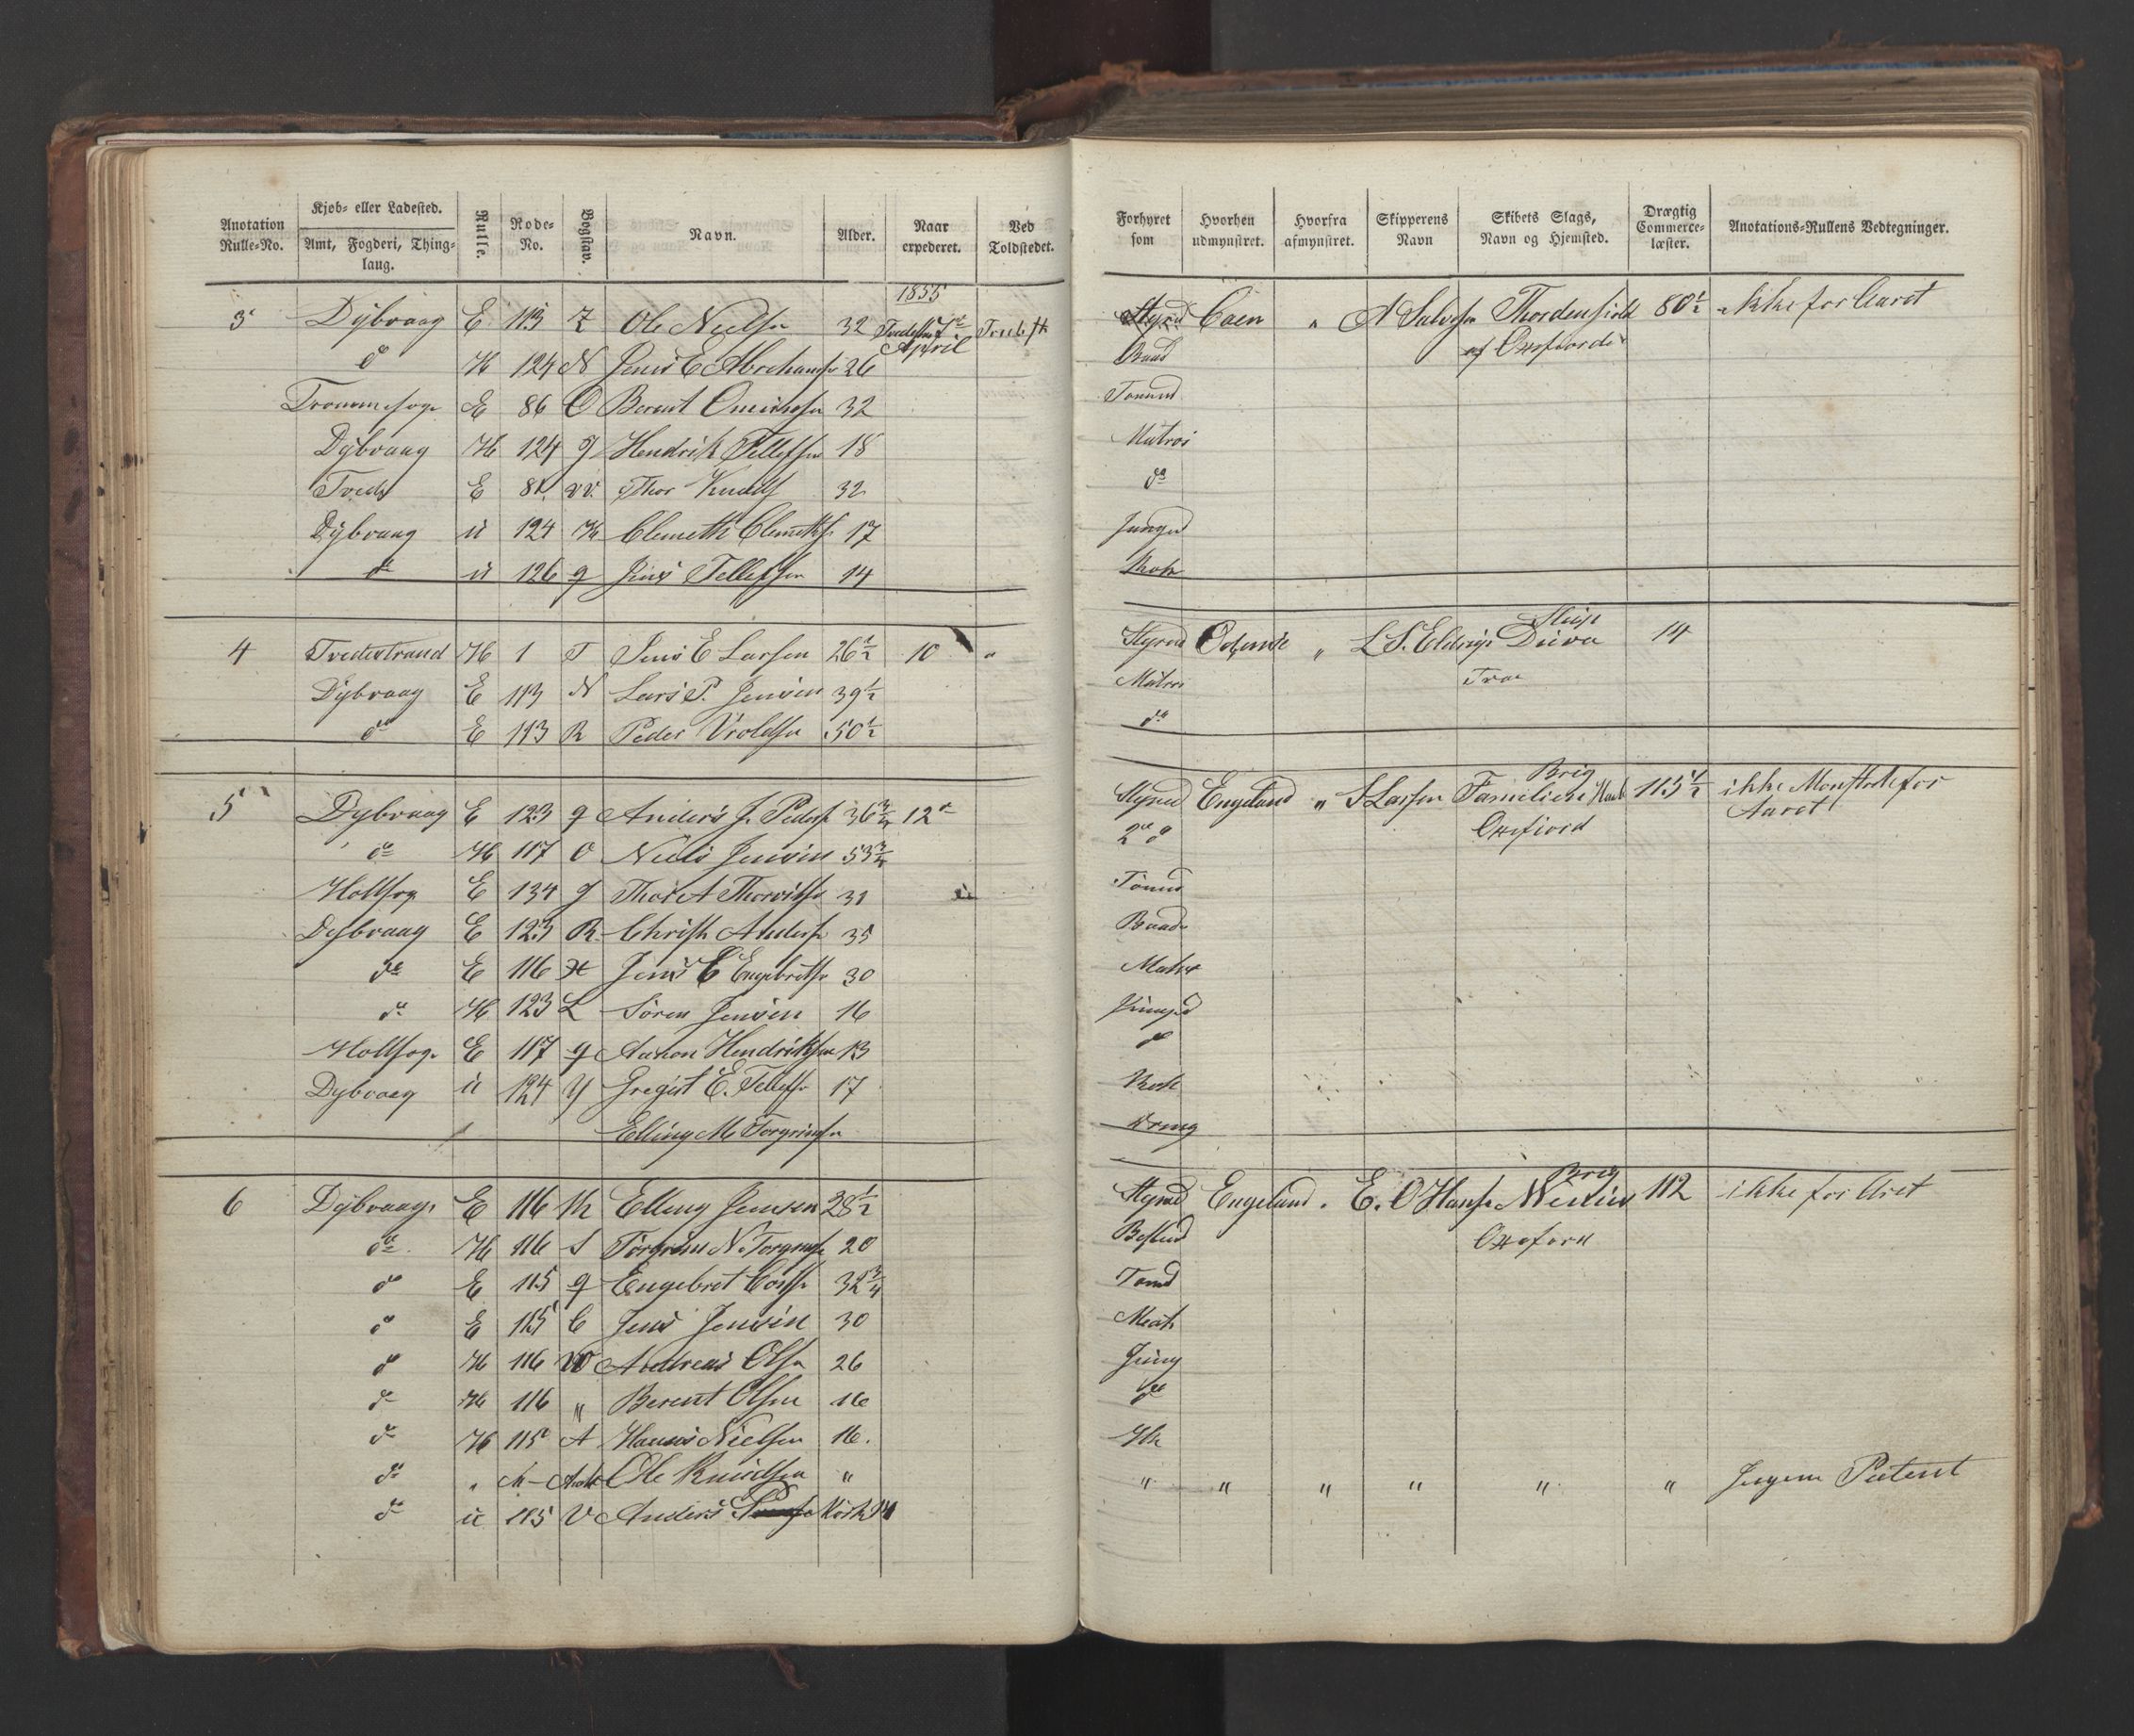 Anotation Rulle-No. | Kjøb- eller Ladested. Amt, Fogderi, Thing-laug. | Rulle. | Rode-No. | Bogstav. | Navn. | Alder. | Naar expederet. | Ved Toldstedet.
1855
3 Dybvaag E 113 Z Ole Nielsen 32 April
do H 124 N Jens E Abrahams 26
Trommesogn E 86 O Berent 32
Dybvaag H 124 g Hendrik Tellefsen 18
Tved E 81 Thor Knuds 32
Dybvaag u 124 H Clemeth Clemeths 17
do u 126 g Jens Tellefsen 14
4 Tvedestrand H 1 T Jens E Larsen 26½ 10 "
Dybvaag E 113 N Lars P. Jensen 39½
do E 113 R Peder Vroldsen 50½
5 Dybvaag E 123 g Anders J. Peders 36¾ 12te
do H 117 O Niels Jensen 53¾
Holtsogn E 134 g Thor A 31
Dybvaag E 123 R Christ Anders 35
do E 116 H Jens E Engebretsen 30
do H 123 L Søren Jensen 16
Holtsogn E 117 g Aanon Hendriksen 13
Dybvaag u 124 Y Gregert E. Tellefs 17
Elling M Torgrimsen
6 Dybvaag E 116 Elling Jensen 28½
do H 116 S Torgrim N. Torgrims 20
do E 115 g Engebret 32¾
do E 115 C Jens Jensen 30
do H 116 W Andreas Olsen 26
do H 116 " Berent Olsen 16
do H 115 A Hans Nielsen 16.
do " Ole Knudsen "
do u 115 V Anders Kok 21
Forhyret som | Hvorhen udmynstret. | Hvorfra afmynstret. | Skipperens Navn | Skibets Slags, Navn og Hjemsted. | Drægtig Commerce-læster. | Anotations-Rullens Vedtegninger.
Styrmd Caen " A Salvesen Thordenskiold 80½ ikke for Aaret
Baad af Oxefiorden
Tømmd
Matros
do
Jungd
Kok
Slup
Styrmd Odense " Duva 14
Matros
do
Brig
Styrmd Engeland " S Larsen Familiens 113½ ikke for
2den do Oxefiord Aaret
Tømd
Baad
Matr
Jungd
do
Kok
Dreng
Brig
Styrmd Engeland " E. O Hansen 112 ikke for Aret
Bestmd Oxefiord
Tømd
Matr
Jung
do
" " " " " " Ingen Patent